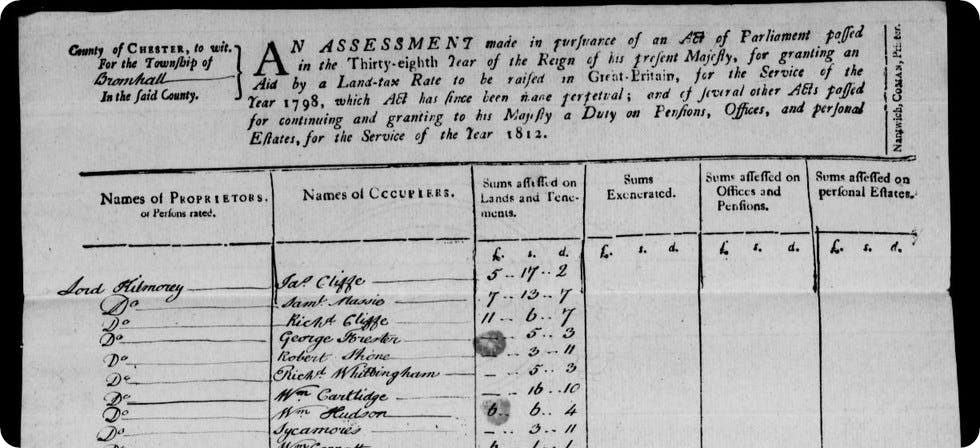 County of CHESTER, to wit.
For the Township of
Bromhall
In the said County.
AN ASSESSMENT made in pursuance of an Act of Parliament passed
in the Thirty-eighth Year of the Reign of his present Majesty, for granting an
Aid by a Land-tax Rate to be raised in Great-Britain, for the Service of the
Year 1798, which Act has since been made perpetual; and of several other Acts passed
for continuing and granting to his Majesty a Duty on Pensions, Offices, and personal
Estates, for the Service of the Year 1812.
Nantwich, Printer.
Names of PROPRIETORS, or Persons rated.
Names of OCCUPIERS.
Sums assessed on Lands and Tenements.
Sums Exonerated.
Sums assessed on Offices and Pensions.
Sums assessed on personal Estates.
£. s. d. £. s. d. £. s. d. £. s. d.
Lord Kilmorey Jas Cliffe 5 .. 17 .. 2
Do Saml Massie 7 .. 13 .. 7
Do Richd Cliffe 11 .. 6 .. 7
Do George Forester 5 .. 3
Do Robert Shone 3 .. 11
Do Richd Whittingham - .. 5 .. 3
Do Wm Cartlidge - .. 16 .. 10
Do Wm Hudson 6 .. 6 .. 4
Do Sycamores - .. 3 .. 11
Do Wm